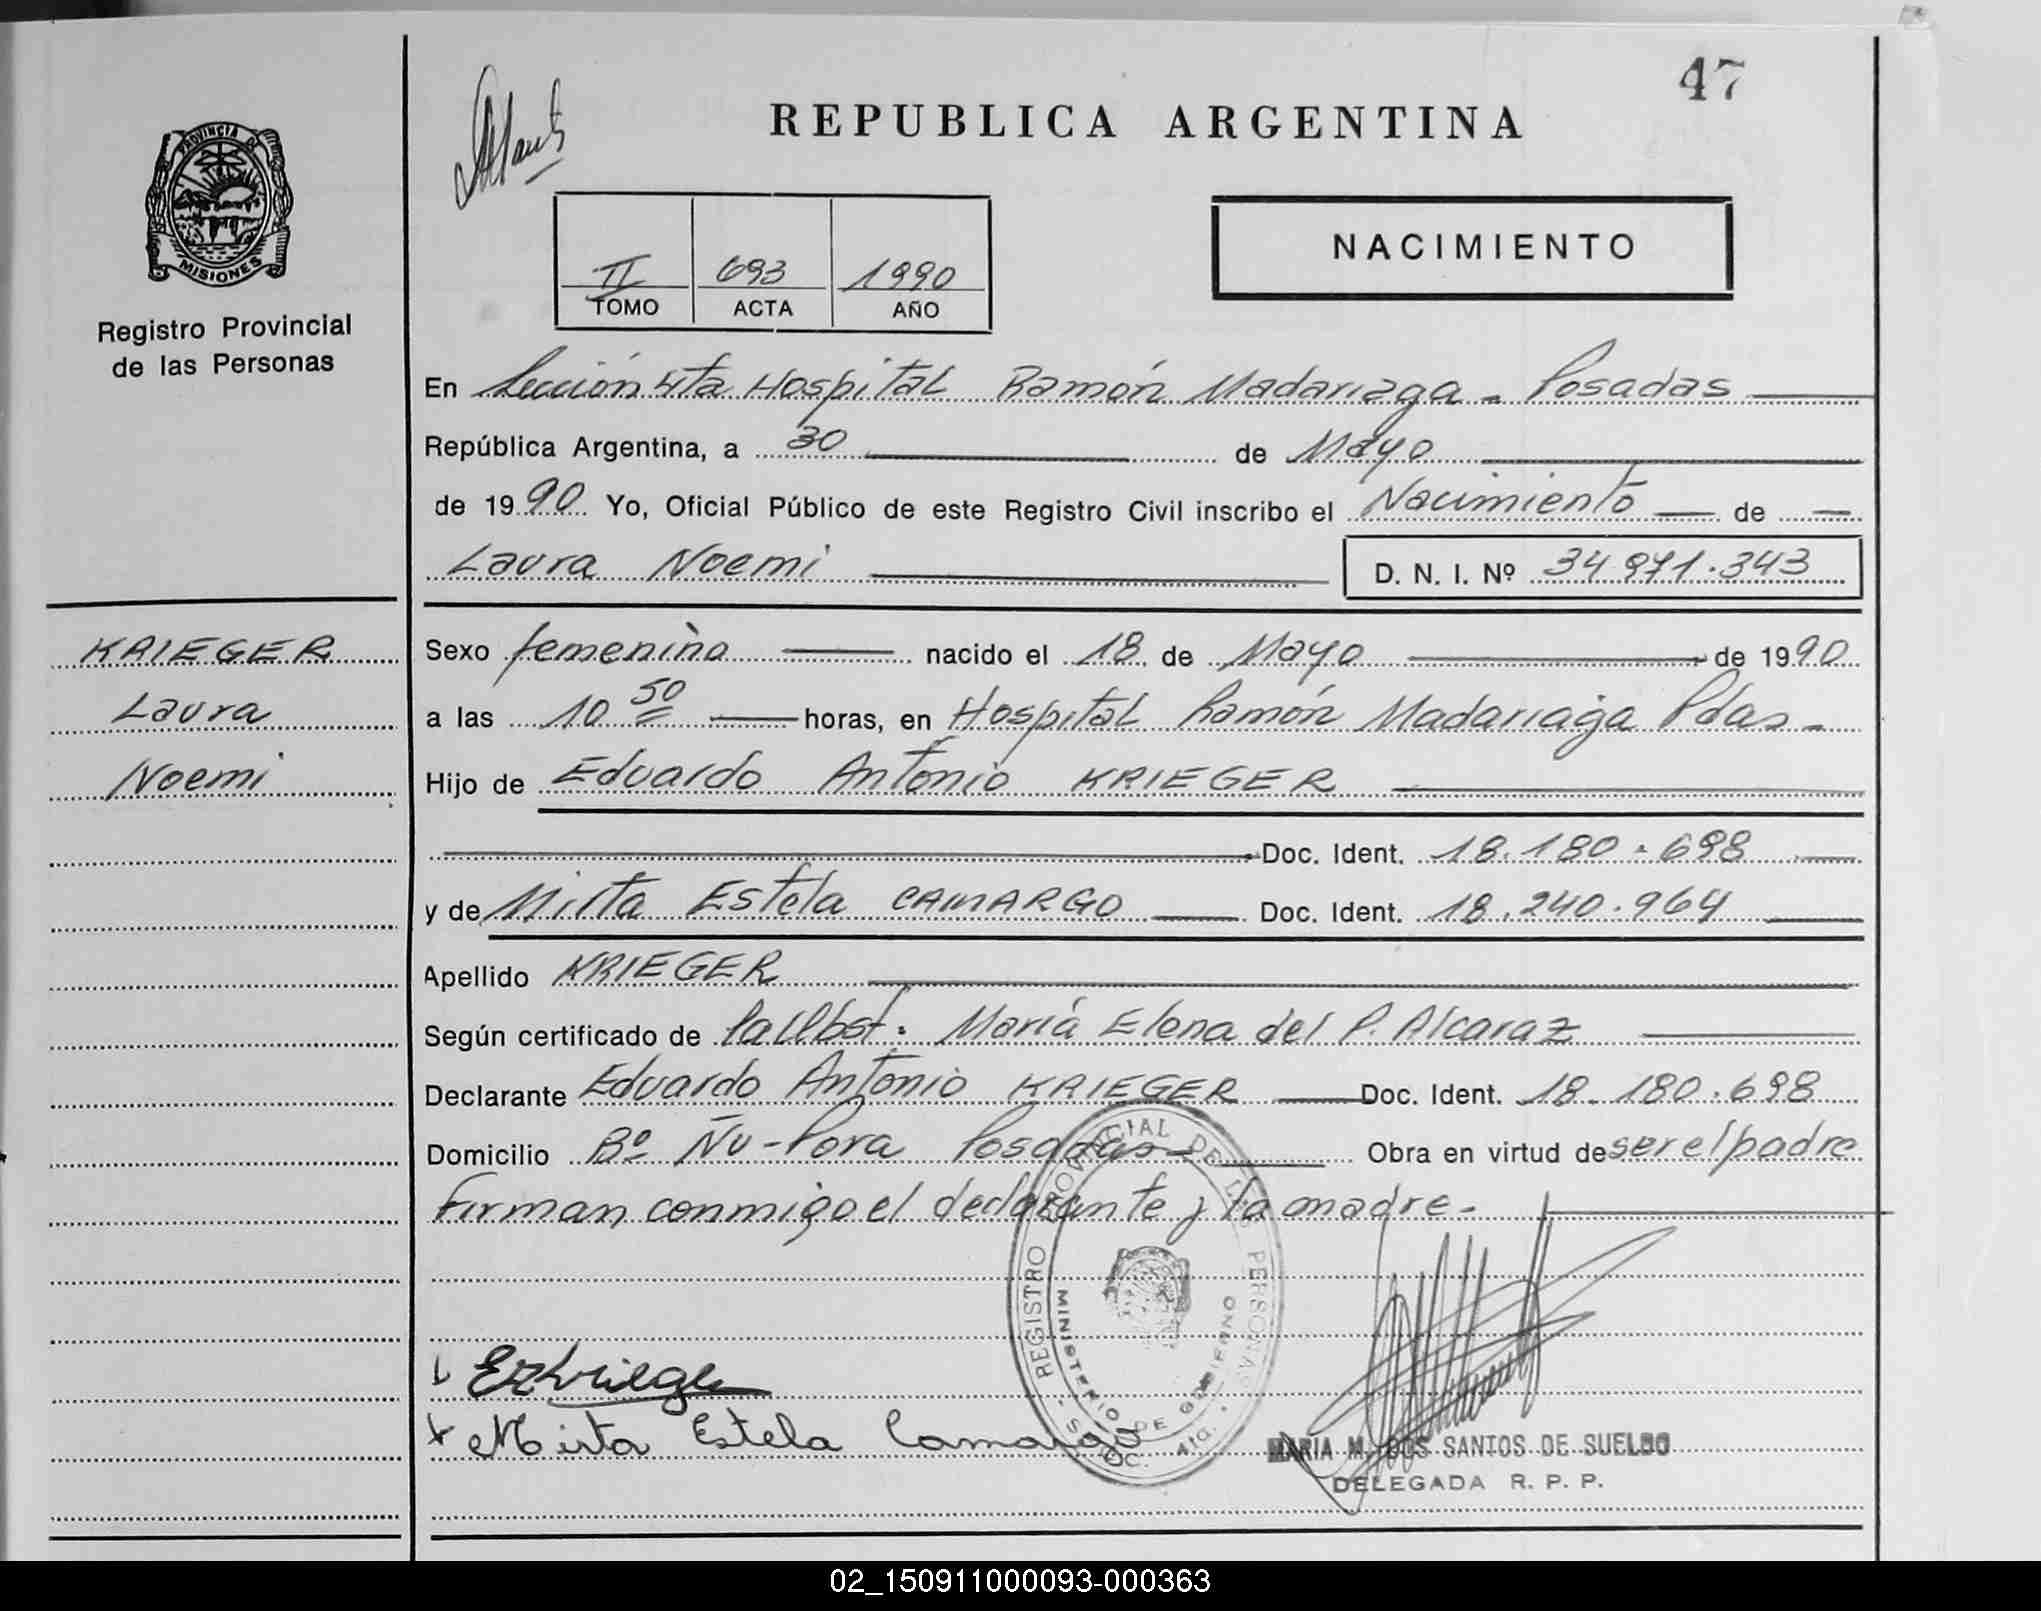 47
REPUBLICA ARGENTINA
PROVINCIA DE
MISIONES
Registro Provincial
de las Personas
II 693 1990
TOMO ACTA AÑO
NACIMIENTO
En Sección 4ta Hospital Ramón Madariaga - Posadas
República Argentina, a 30 de Mayo
de 1990 Yo, Oficial Público de este Registro Civil inscribo el Nacimiento de
Laura Noemi D. N. I. Nº 34.971.343
KRIEGER
Laura
Noemi
Sexo femenino nacido el 18 de Mayo de 1990
a las 10 50 horas, en Hospital Ramón Madariaga Pdas -
Hijo de Eduardo Antonio KRIEGER
Doc. Ident. 18.180.698
y de Mirta Estela CAMARGO Doc. Ident. 18.240.964
Apellido KRIEGER
Según certificado de María Elena del P. Alcaraz
Declarante Eduardo Antonio KRIEGER Doc. Ident. 18.180.698
Domicilio Bº Ñu-Pora Posadas Obra en virtud de ser el padre
Firman conmigo el declarante y la madre.-
REGISTRO PROVINCIAL DE LAS PERSONAS
MINISTERIO DE GOBIERNO
Mirta Estela Camargo
MARIA M. DOS SANTOS DE SUELDO
DELEGADA R. P. P.
02_150911000093-000363